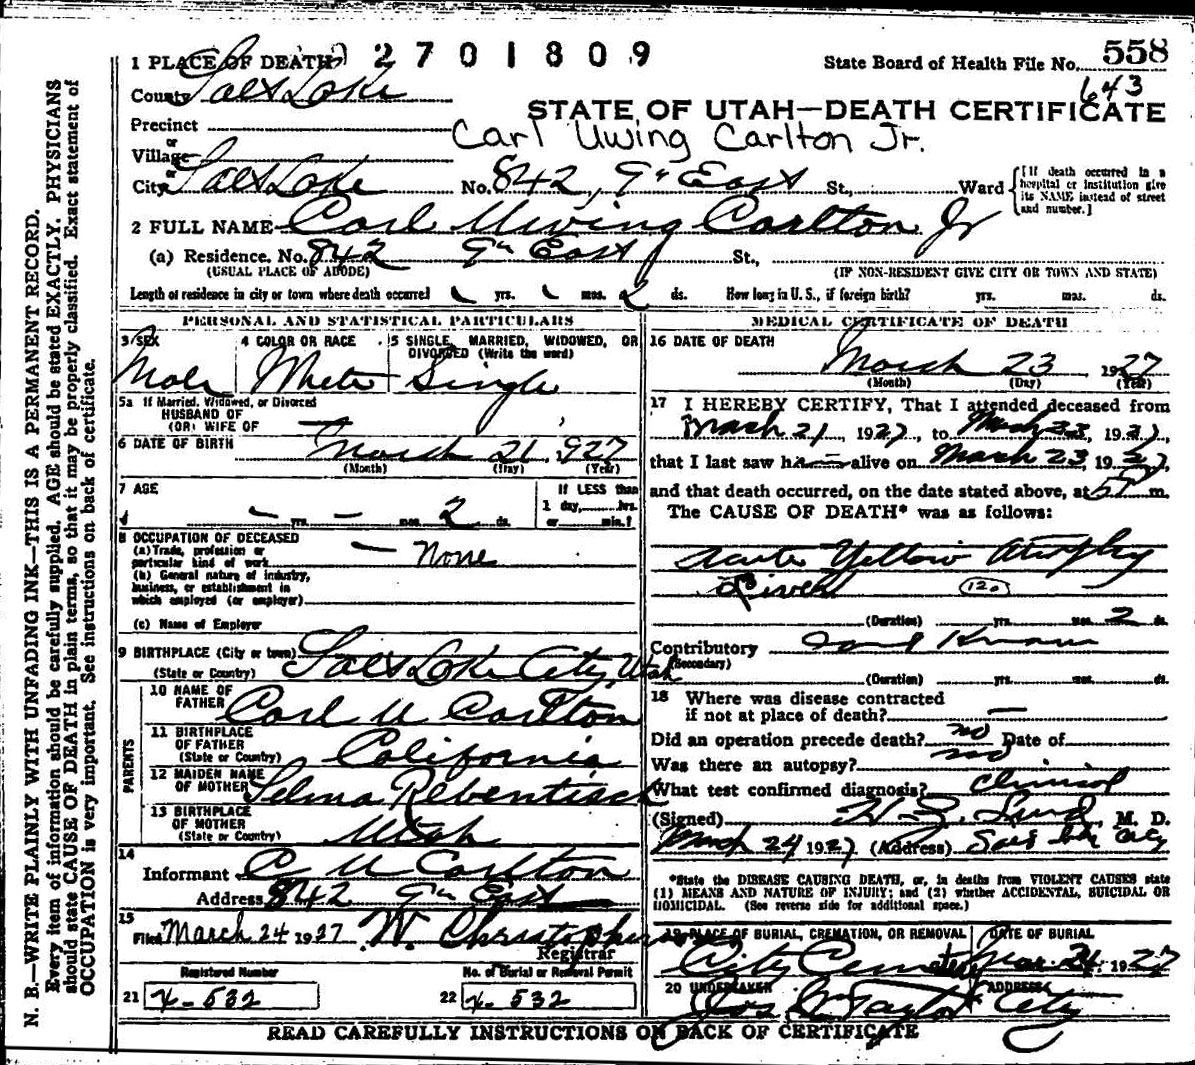 1 PLACE OF DEATH 2701809 State Board of Health File No. 558
County Salt Lake 643
STATE OF UTAH—DEATH CERTIFICATE
Precinct
Carl Uwing Carlton Jr.
or
Village
or
City Salt Lake No. 842, 9th East St., Ward [If death occurred in a hospital or institution give its NAME instead of street and number.]
2 FULL NAME Carl Uwing Carlton Jr
(a) Residence. No. 842 9th East St.,
(USUAL PLACE OF ABODE) (IF NON-RESIDENT GIVE CITY OR TOWN AND STATE)
Length of residence in city or town where death occurred yrs. mos. 2 ds. How long in U. S., if foreign birth? yrs. mos. ds.
PERSONAL AND STATISTICAL PARTICULARS
3 SEX 4 COLOR OR RACE 5 SINGLE, MARRIED, WIDOWED, OR DIVORCED (Write the word)
Male White Single
5a If Married, Widowed, or Divorced
HUSBAND OF
(OR) WIFE OF —
6 DATE OF BIRTH March 21, 927
(Month) (Day) (Year)
7 AGE If LESS than
— yrs. — mos. 2 ds. 1 day, hrs.
or min.?
8 OCCUPATION OF DECEASED
(a) Trade, profession or
particular kind of work — None
(b) General nature of industry,
business, or establishment in
which employed (or employer)
(c) Name of Employer
9 BIRTHPLACE (City or town) Salt Lake City, Utah
(State or Country)
PARENTS
10 NAME OF
FATHER Carl U Carlton
11 BIRTHPLACE
OF FATHER California
(State or Country)
12 MAIDEN NAME
OF MOTHER Selma Rebentisch
13 BIRTHPLACE
OF MOTHER Utah
(State or Country)
14
Informant C U Carlton
Address 842 9th East
15
Filed March 24 1927 W. Christopherson
Registrar
Registered Number No. of Burial or Removal Permit
21 x-532 22 x-532
MEDICAL CERTIFICATE OF DEATH
16 DATE OF DEATH
March 23, 1927
(Month) (Day) (Year)
17 I HEREBY CERTIFY, That I attended deceased from
March 21, 1927, to March 23, 1927,
that I last saw h alive on March 23, 1927,
and that death occurred, on the date stated above, at m.
The CAUSE OF DEATH* was as follows:
Acute Yellow Atrophy
Liver 120
(Duration) yrs. mos. 2 ds.
Contributory
(Secondary)
(Duration) yrs. mos. ds.
18 Where was disease contracted
if not at place of death? —
Did an operation precede death? no Date of
Was there an autopsy? no
What test confirmed diagnosis? Clinical
(Signed) H. Z. Lund, M. D.
March 24 1927 (Address) Salt Lake City
*State the DISEASE CAUSING DEATH, or, in deaths from VIOLENT CAUSES state
(1) MEANS AND NATURE OF INJURY; and (2) whether ACCIDENTAL, SUICIDAL OR
HOMICIDAL. (See reverse side for additional space.)
19 PLACE OF BURIAL, CREMATION, OR REMOVAL DATE OF BURIAL
City Cemetery Mar. 24, 1927
20 UNDERTAKER ADDRESS
Jos Wm Taylor City
READ CAREFULLY INSTRUCTIONS ON BACK OF CERTIFICATE
N. B.—WRITE PLAINLY WITH UNFADING INK—THIS IS A PERMANENT RECORD.
Every item of information should be carefully supplied. AGE should be stated EXACTLY. PHYSICIANS
should state CAUSE OF DEATH in plain terms, so that it may be properly classified. Exact statement of
OCCUPATION is very important. See instructions on back of certificate.